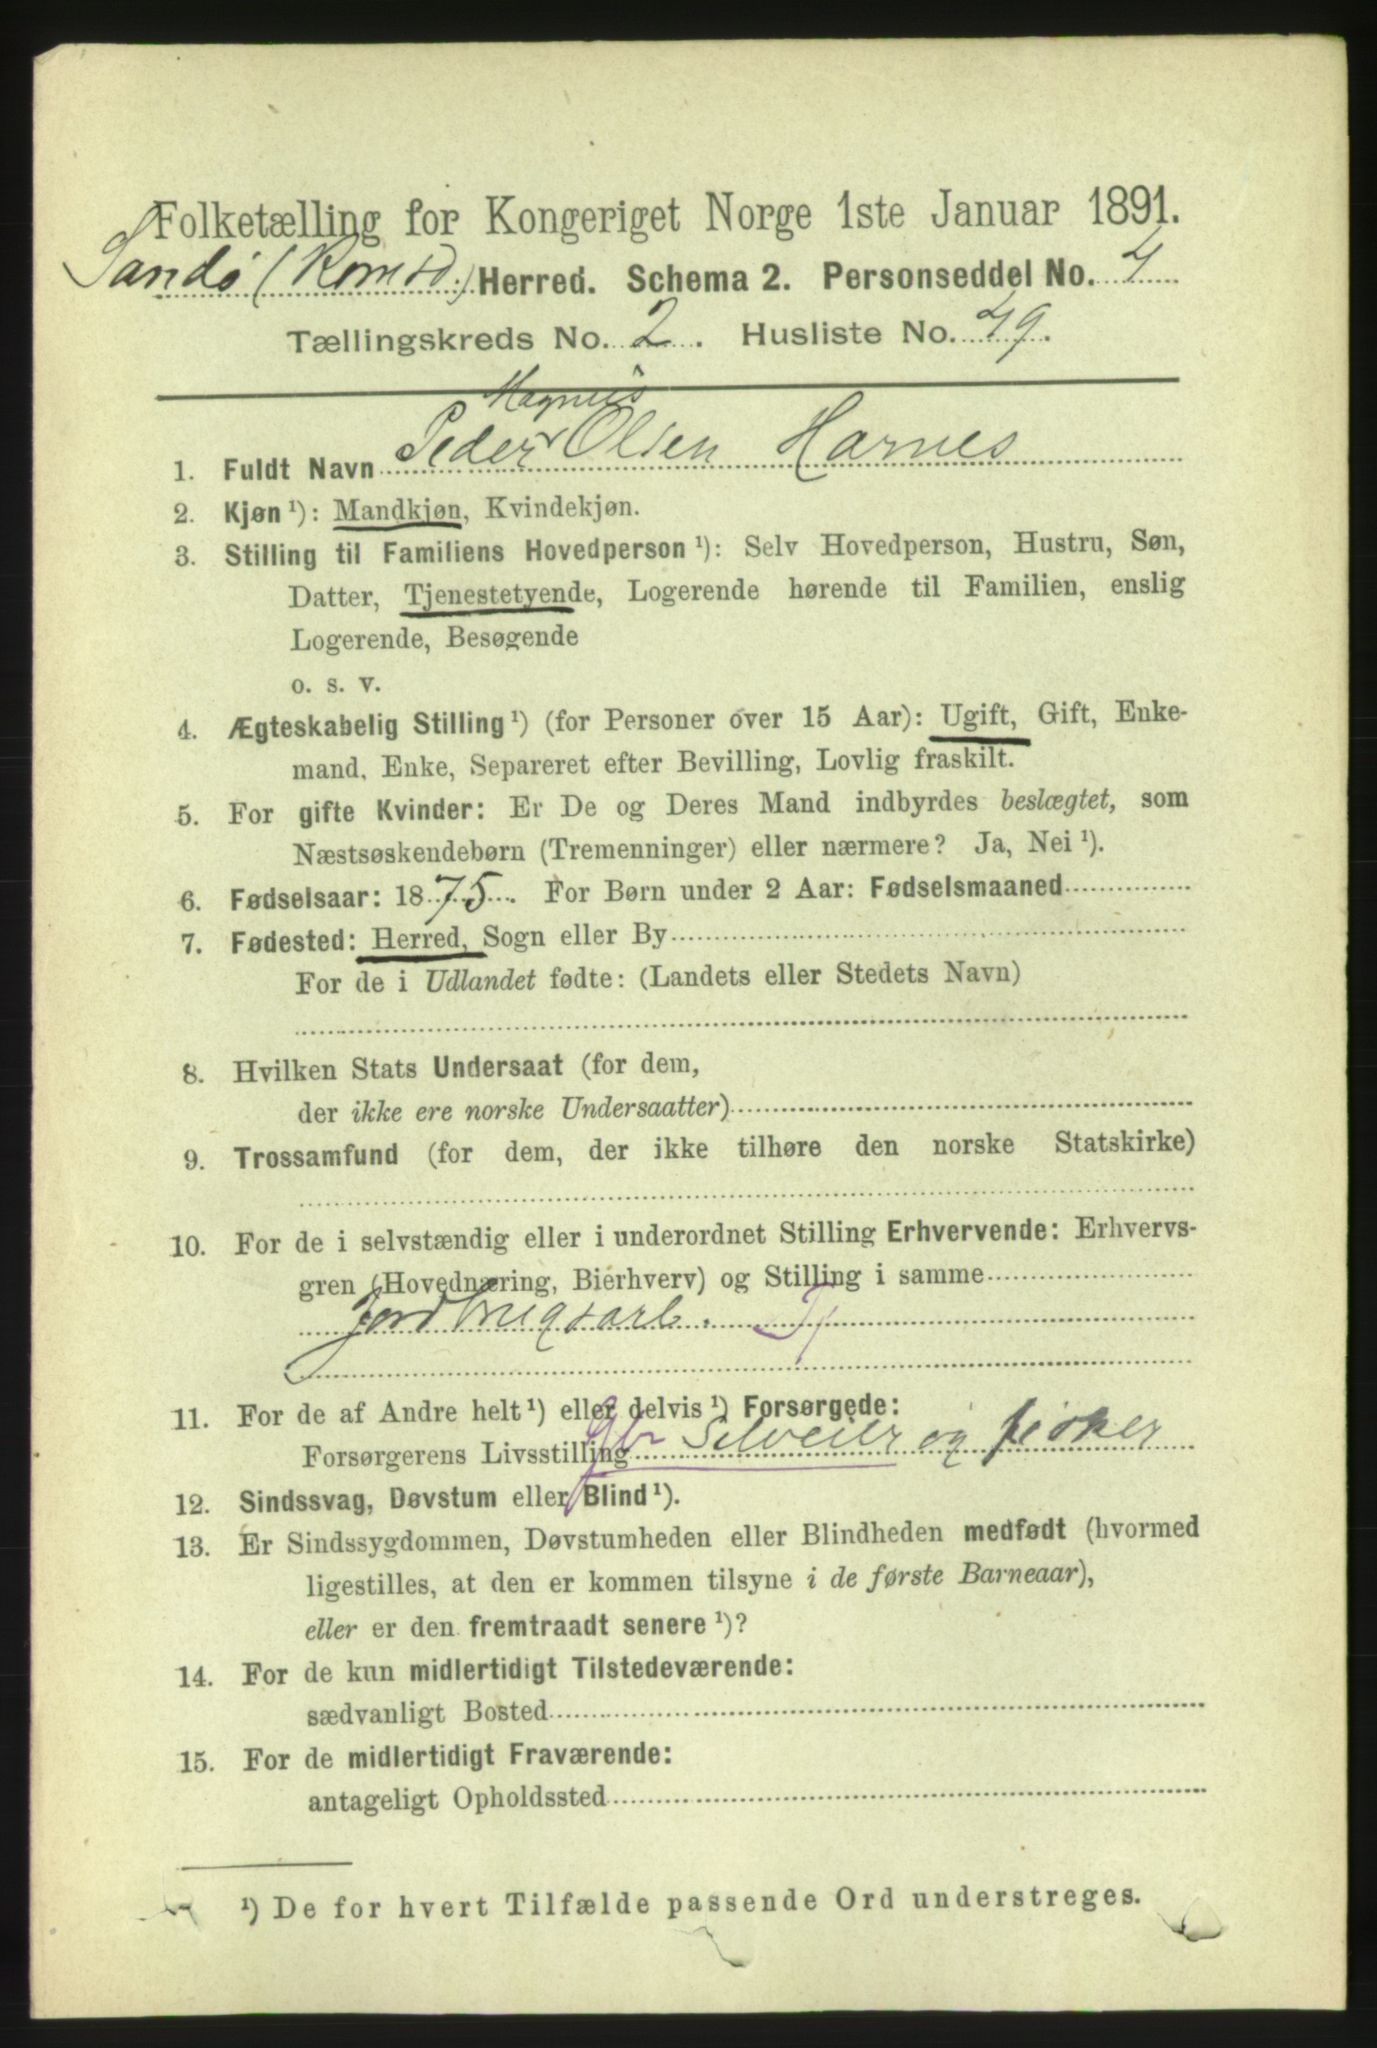 Folketælling for Kongeriget Norge 1ste Januar 1891.
Sandø (Romsd.) Herred. Schema 2. Personseddel No. 4
Tællingskreds No. 2. Husliste No. 49.
Magnus
1. Fuldt Navn Peder Olsen Harnes
2. Kjøn ¹): Mandkjøn, Kvindekjøn.
3. Stilling til Familiens Hovedperson ¹): Selv Hovedperson, Hustru, Søn,
Datter, Tjenestetyende, Logerende hørende til Familien, enslig
Logerende, Besøgende
o. s. v.
4. Ægteskabelig Stilling ¹) (for Personer over 15 Aar): Ugift, Gift, Enke-
mand, Enke, Separeret efter Bevilling, Lovlig fraskilt.
5. For gifte Kvinder: Er De og Deres Mand indbyrdes beslægtet, som
Næstsøskendebørn (Tremenninger) eller nærmere? Ja, Nei ¹).
6. Fødselsaar: 1875. For Børn under 2 Aar: Fødselsmaaned
7. Fødested: Herred, Sogn eller By
For de i Udlandet fødte: (Landets eller Stedets Navn)
8. Hvilken Stats Undersaat (for dem,
der ikke ere norske Undersaatter)
9. Trossamfund (for dem, der ikke tilhøre den norske Statskirke)
10. For de i selvstændig eller i underordnet Stilling Erhvervende: Erhvervs-
gren (Hovednæring, Bierhverv) og Stilling i samme
Jordbrugsarb. Tj
11. For de af Andre helt ¹) eller delvis ¹) Forsørgede:
Forsørgerens Livsstilling Gbr Selveier og fisker
12. Sindssvag, Døvstum eller Blind ¹).
13. Er Sindssygdommen, Døvstumheden eller Blindheden medfødt (hvormed
ligestilles, at den er kommen tilsyne i de første Barneaar),
eller er den fremtraadt senere ¹)?
14. For de kun midlertidigt Tilstedeværende:
sædvanligt Bosted
15. For de midlertidigt Fraværende:
antageligt Opholdssted
¹) De for hvert Tilfælde passende Ord understreges.